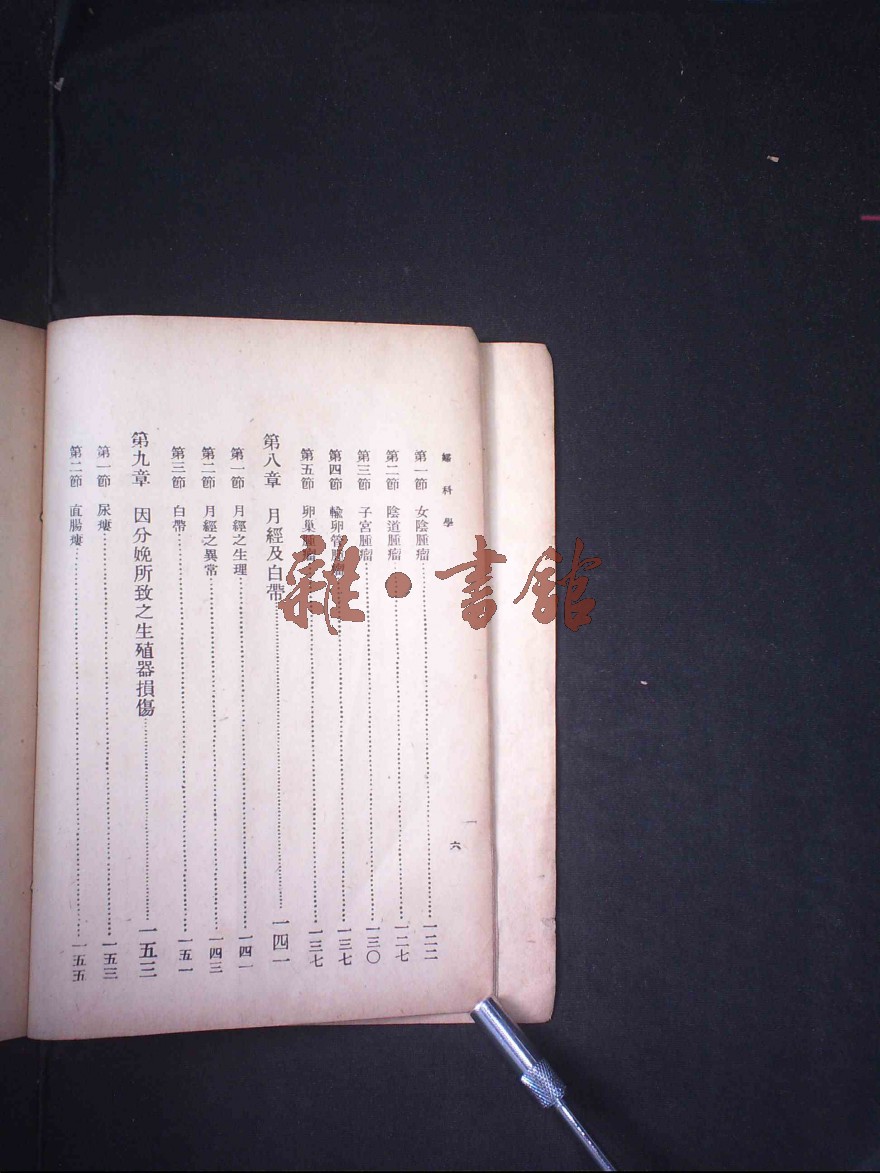 婦科學
六
第一節 女陰腫瘤 一二二
第二節 陰道腫瘤 一二七
第三節 子宮腫瘤 一三〇
第四節 輸卵管腫瘤 一三七
第五節 卵巢腫瘤 一三七
第八章 月經及白帶 一四一
第一節 月經之生理 一四一
第二節 月經之異常 一四三
第三節 白帶 一五一
第九章 因分娩所致之生殖器損傷 一五三
第一節 尿瘻 一五三
第二節 直腸瘻 一五五
雜·書館